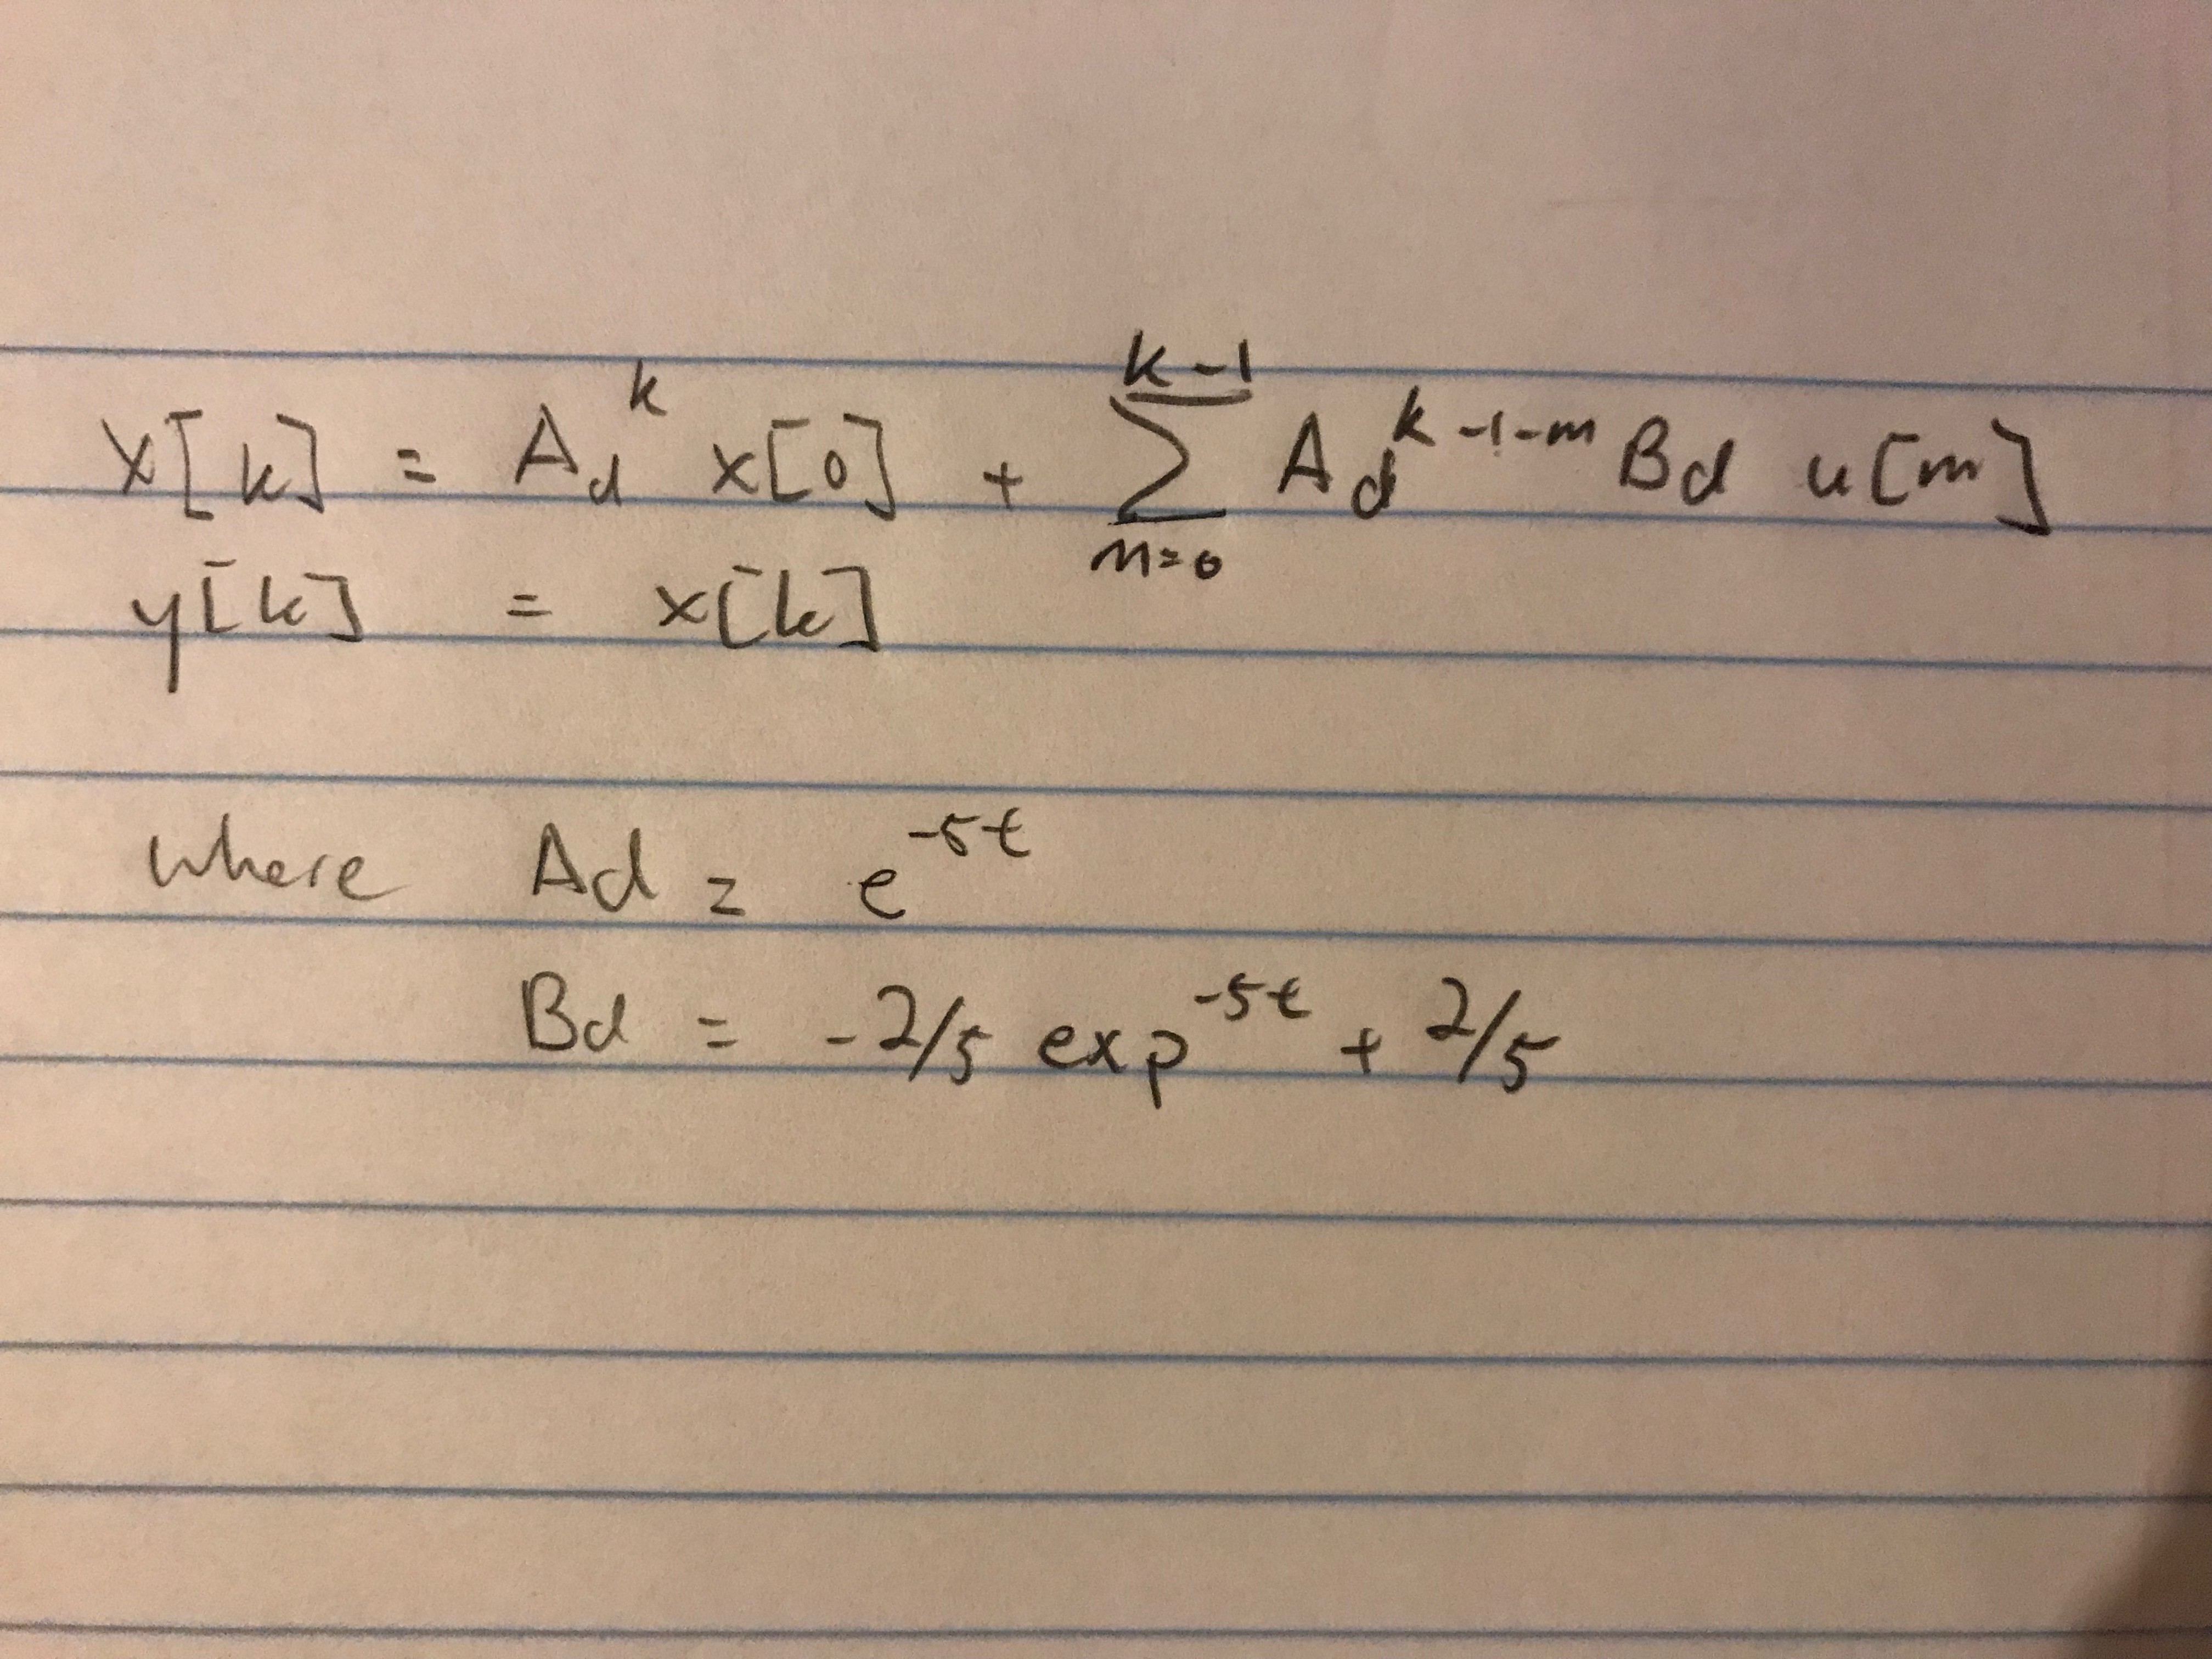 x[k] = A_d^k x[0] + ∑_{m=0}^{k-1} A_d^{k-1-m} Bd u[m]
y[k] = x[k]
where Ad = e^{-5t}
Bd = -2/5 exp^{-5t} + 2/5